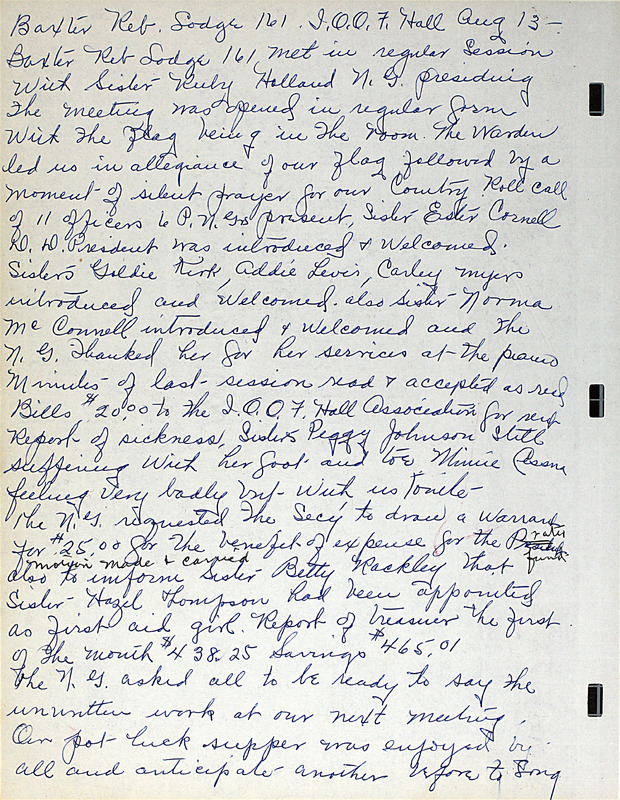 Baxter Reb. Lodge 161. I.O.O.F. Hall Aug 13 -
Baxter Reb Lodge 161 met in regular Session
With Sister Ruby Holland N.G. presiding
The meeting was opened in regular form
With The Flag being in The room. The Warden
led us in allegiance of our Flag followed by a
moment of silent prayer for our Country. Roll call
of 11 officers 6 P.N.Gs present, Sister Ester Cornell
D.D. President was introduced & Welcomed.
Sisters Goldie Kirk, Addie Levis, Carley Myers
introduced and Welcomed. also sister Norma
McConnell introduced & Welcomed and The
N.G. Thanked her for her services at the piano
Minutes of last session read & accepted as read
Bills $20.00 to The I.O.O.F. Hall Association for rent
Report of sickness, Sisters Peggy Johnson Still
suffering With her foot and toe Minnie
feeling Very badly but With us Tonite -
The N.G. requested The Sec'y to draw a Warrant
for $25.00 for The benefit of expense for the
motion made & carried
also to inform Sister Betty Rackley That
Sister Hazel Thompson had been appointed
as first aid girl. Report of treasurer The first
of The month $438.25 Savings $465.01
The N.G. asked all to be ready to say The
unwritten work at our next meeting.
Our pot luck supper was enjoyed by
all and anticipate another before to long